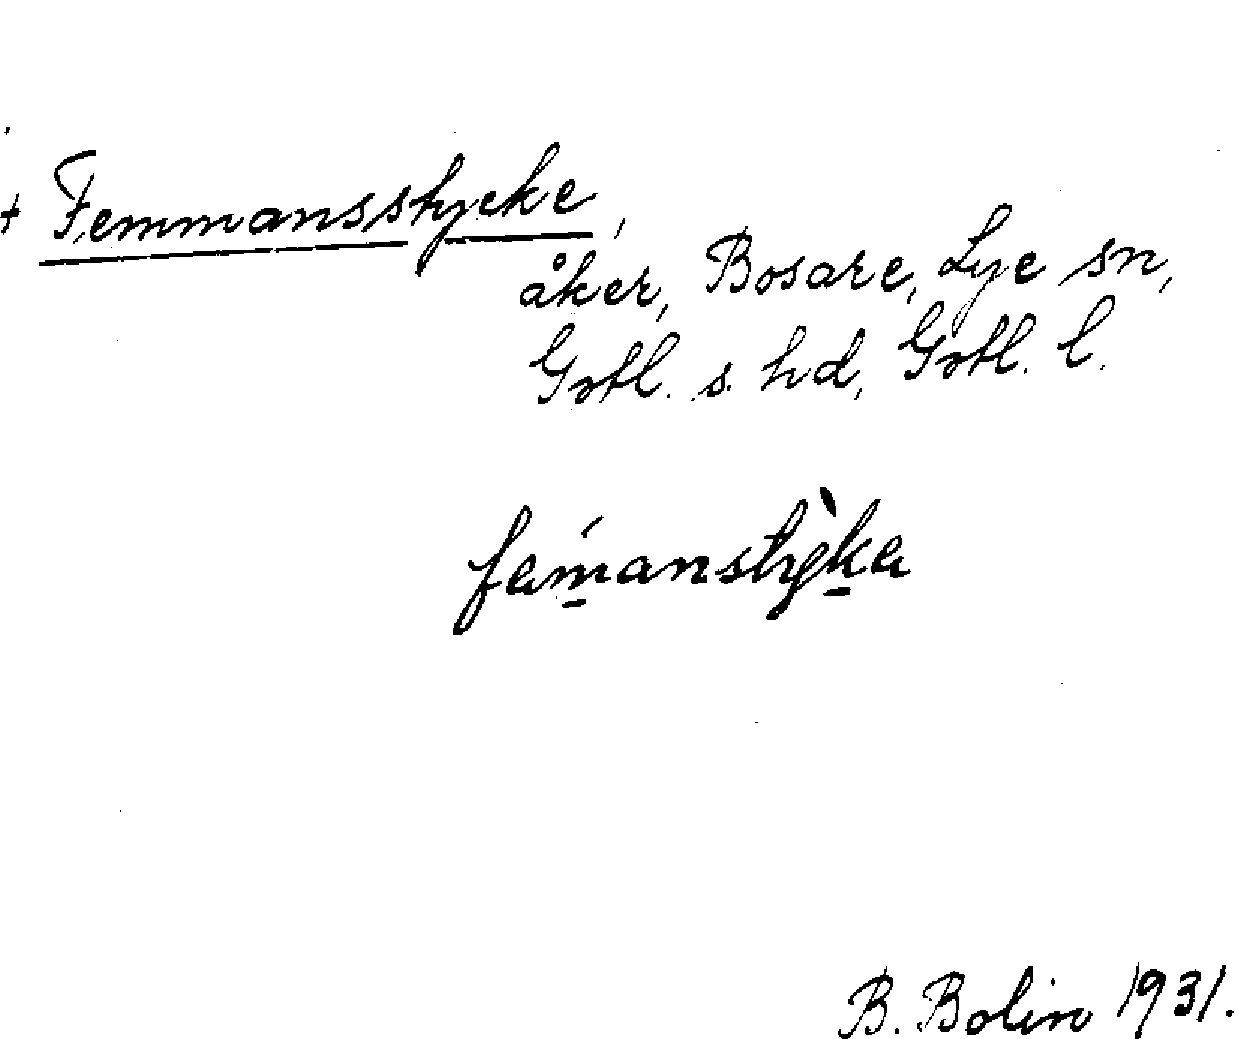 + Femmansstycke,
åker, Bosare, Lye sn,
Gotl. s. hd, Gotl. l.
faḿ̲anstyk̲̀a
B. Bolin 1931.